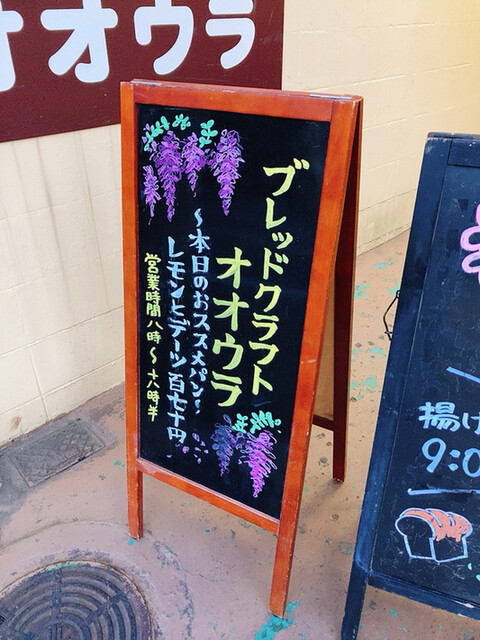 オオウラ
ブレッドクラフト
オオウラ
～本日のおススメパン～
レモンとデーツ百七十円
営業時間八時～十八時半
揚げ
9:0